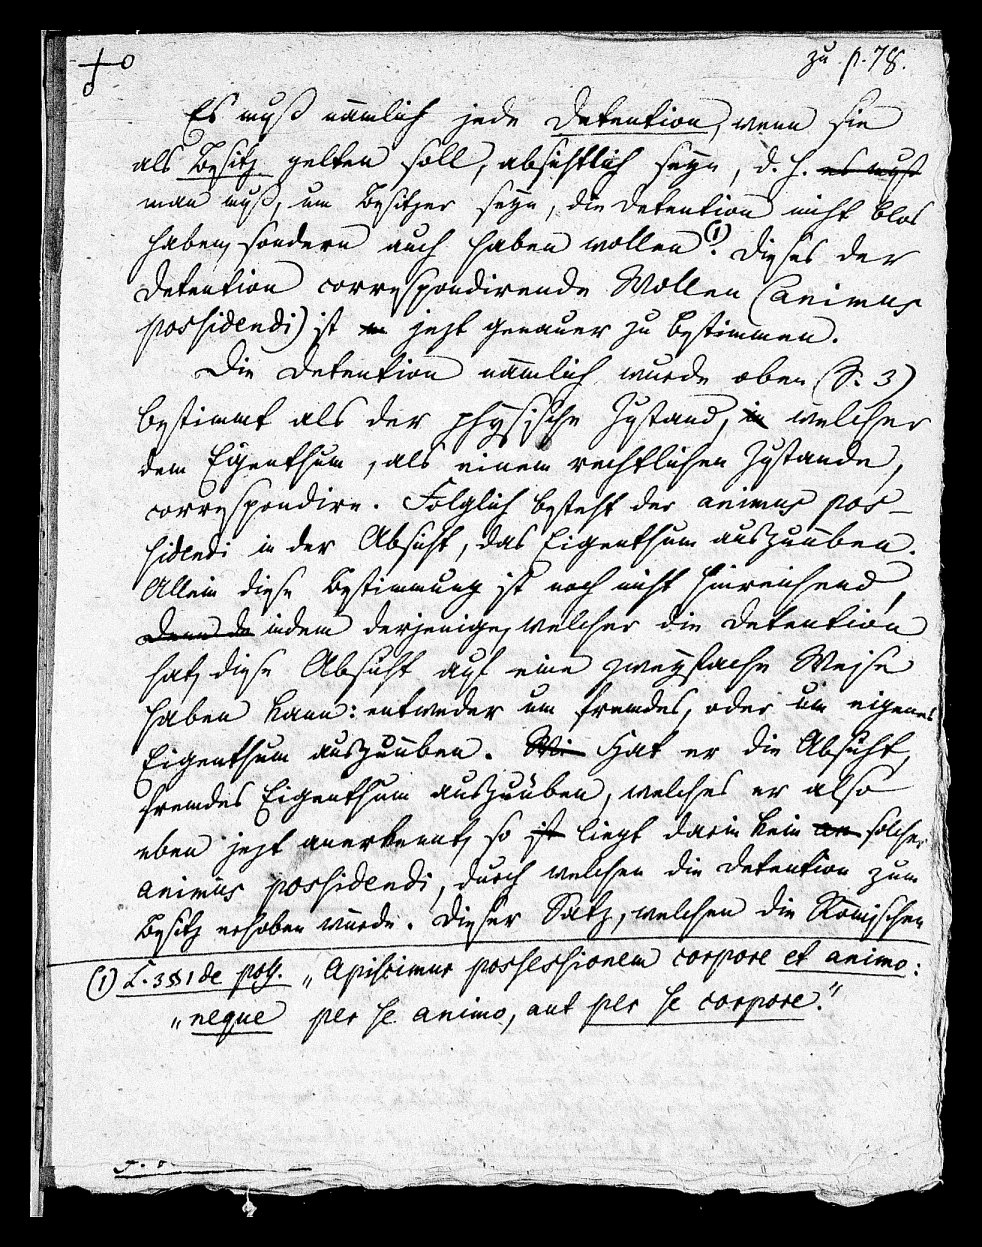 zu p. 78.
Es muß nämlich jede Detention, wenn sie
als Besitz gelten soll, absichtlich seyn, d. h. es muß
man muß, um Besitzer seyn, die Detention nicht blos
haben, sondern auch haben wollen (1). Dieses der
Detention correspondirende Wollen (animus
possidendi) ist jezt genauer zu bestimmen.
Die Detention nämlich wurde oben (S. 3)
bestimmt als der physische Zustand, in welcher
dem Eigenthum, als einem rechtlichen Zustande,
correspondire. Folglich besteht der animus pos-
sidendi in der Absicht, das Eigenthum auszuüben.
Allein diese Bestimmung ist noch nicht hinreichend,
Denn da indem derjenige, welcher die Detention
hat, diese Absicht auf eine zweyfache Weise
haben kann: entweder um fremdes, oder um eigenes
Eigenthum auszuüben. Wi Hat er die Absicht,
fremdes Eigenthum auszuüben, welches er also
eben jezt anerkennt, so ist liegt darin kein an solcher
animus possidendi, durch welchen die Detention zum
Besitz erhoben würde. Dieser Satz, welchen die Römischen
(1) L. 3 § 1 de poss. „Apiscimur possessionem corpore et animo:
„neque per se animo, aut per se corpore."